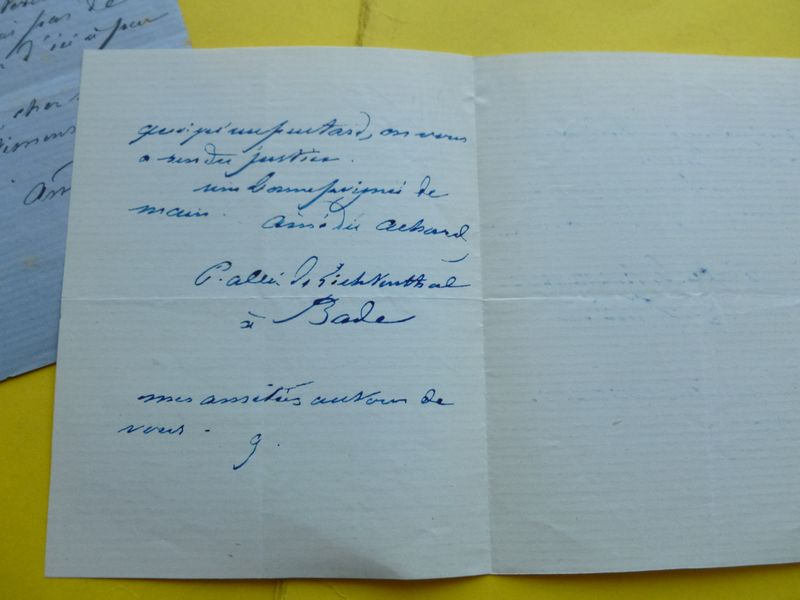 pas de
d'ici à
cher
quoiqu'un peu tard, on vous
a rendu justice.
une bonne poignée de
main. Amédée Achard
allée de Lichtenthal
à Bade
mes amitiés autour de
vous.